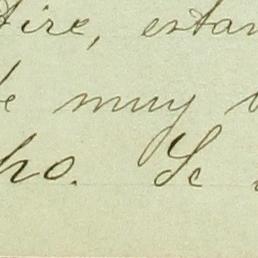 tire, estan
te muy b
ho. Se